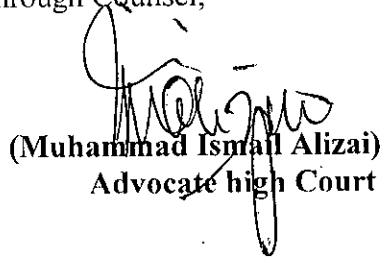 through Counsel,
(Muhammad Ismail Alizai)
Advocate high Court